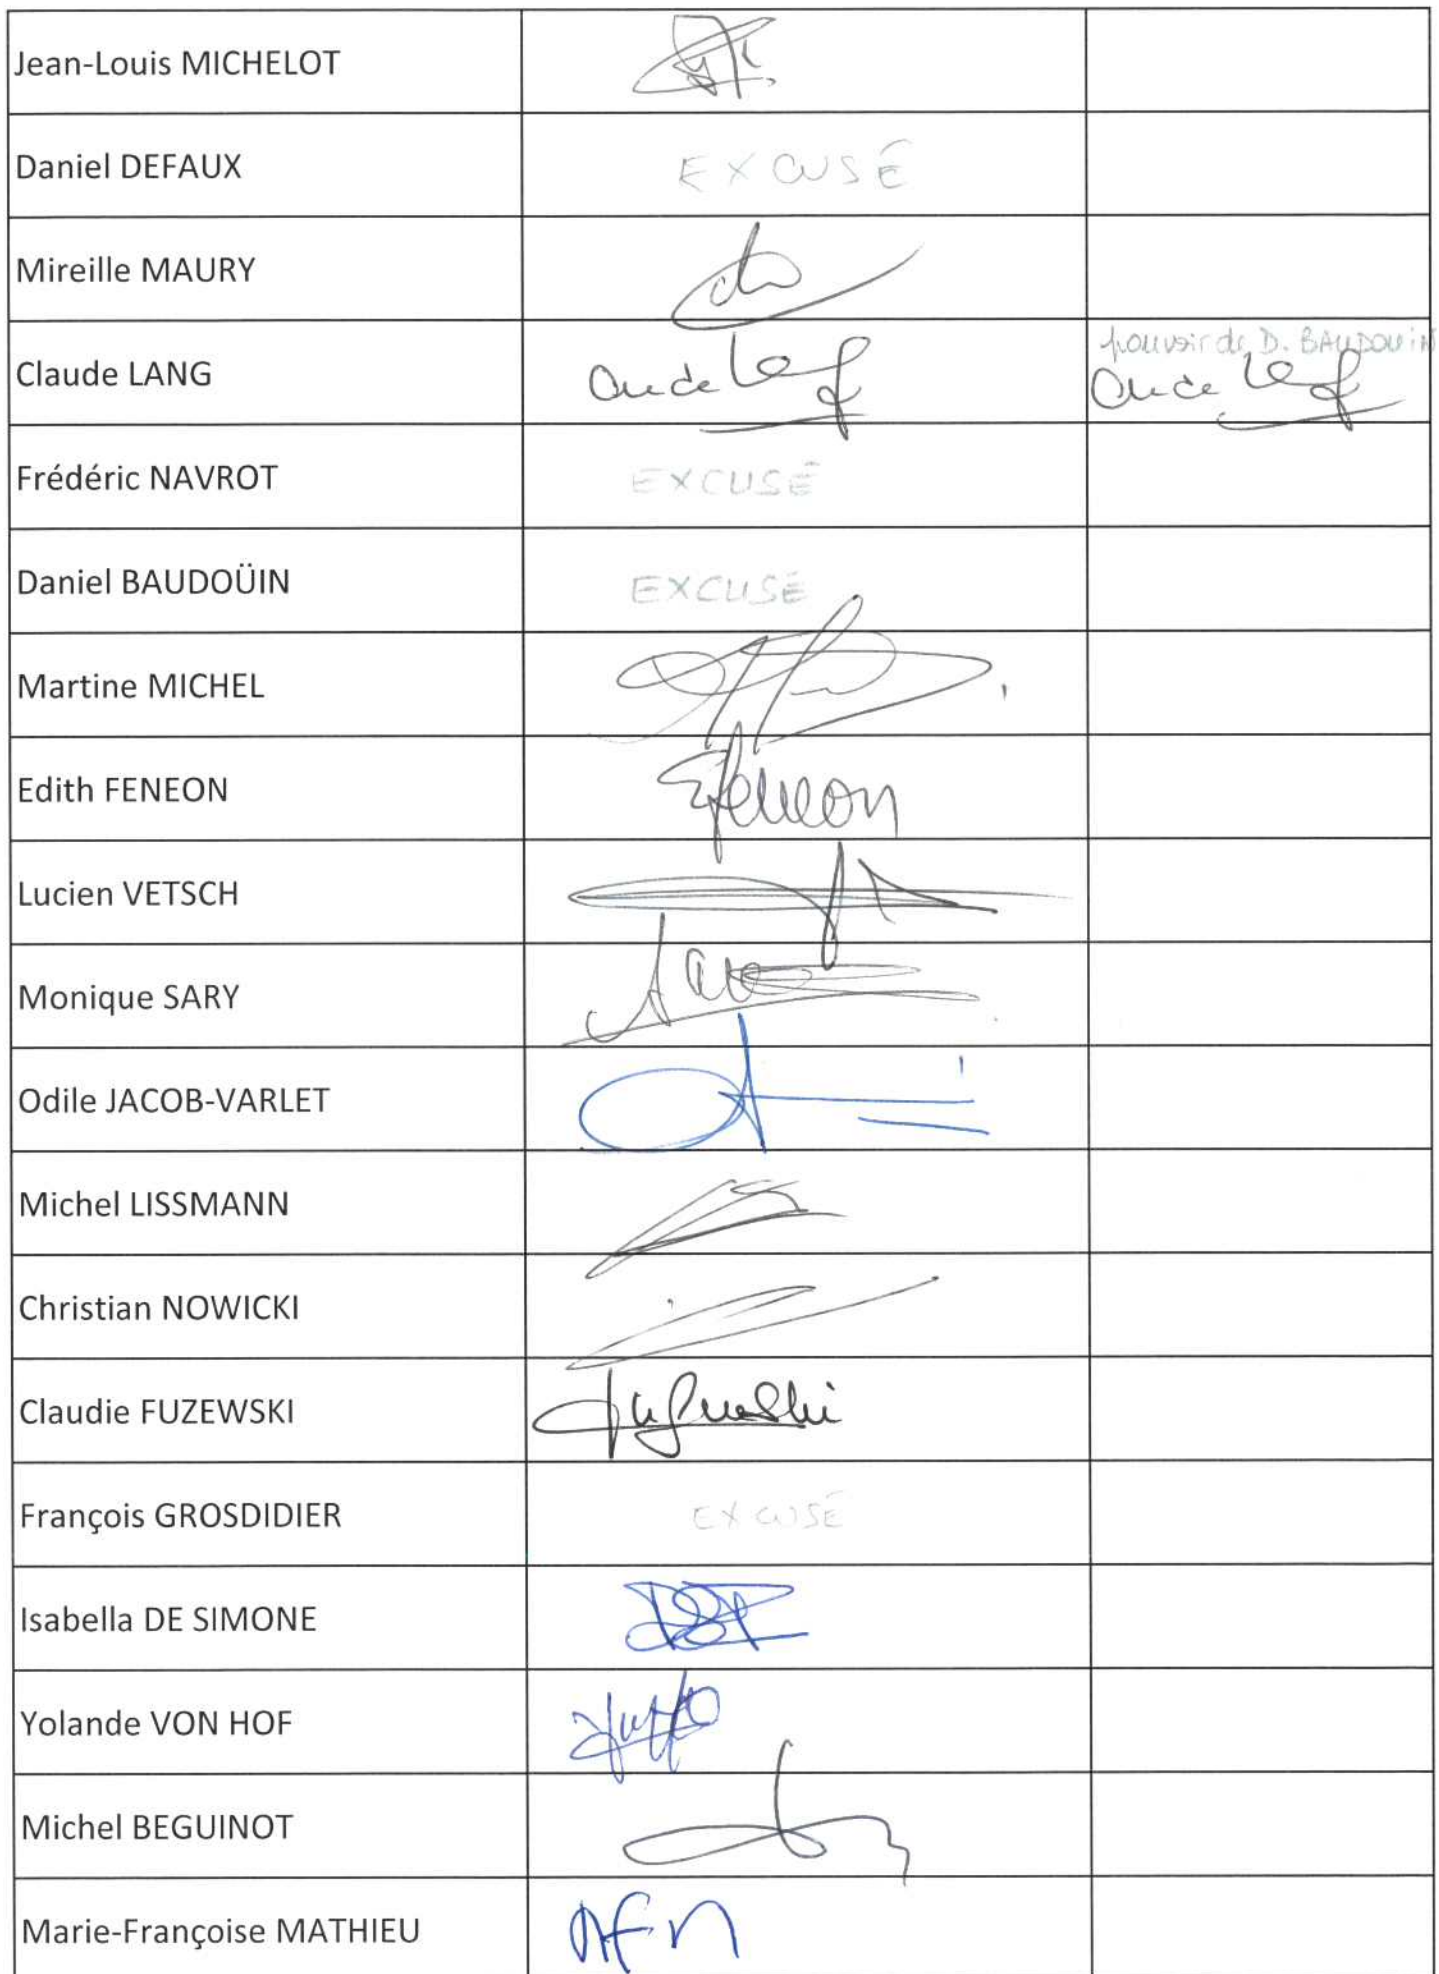 Jean-Louis MICHELOT
Daniel DEFAUX
EXCUSÉ
Mireille MAURY
Claude LANG
pouvoir de D. BAUDOUIN
Frédéric NAVROT
EXCUSÉ
Daniel BAUDOÜIN
EXCUSÉ
Martine MICHEL
Edith FENEON
Efeneon
Lucien VETSCH
Monique SARY
Odile JACOB-VARLET
Michel LISSMANN
Christian NOWICKI
Claudie FUZEWSKI
François GROSDIDIER
EXCUSÉ
Isabella DE SIMONE
Yolande VON HOF
Michel BEGUINOT
Marie-Françoise MATHIEU